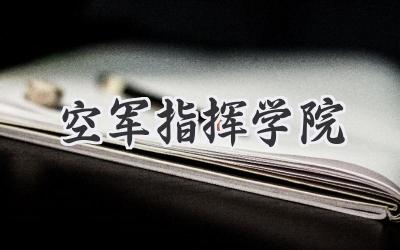 空军指挥学院